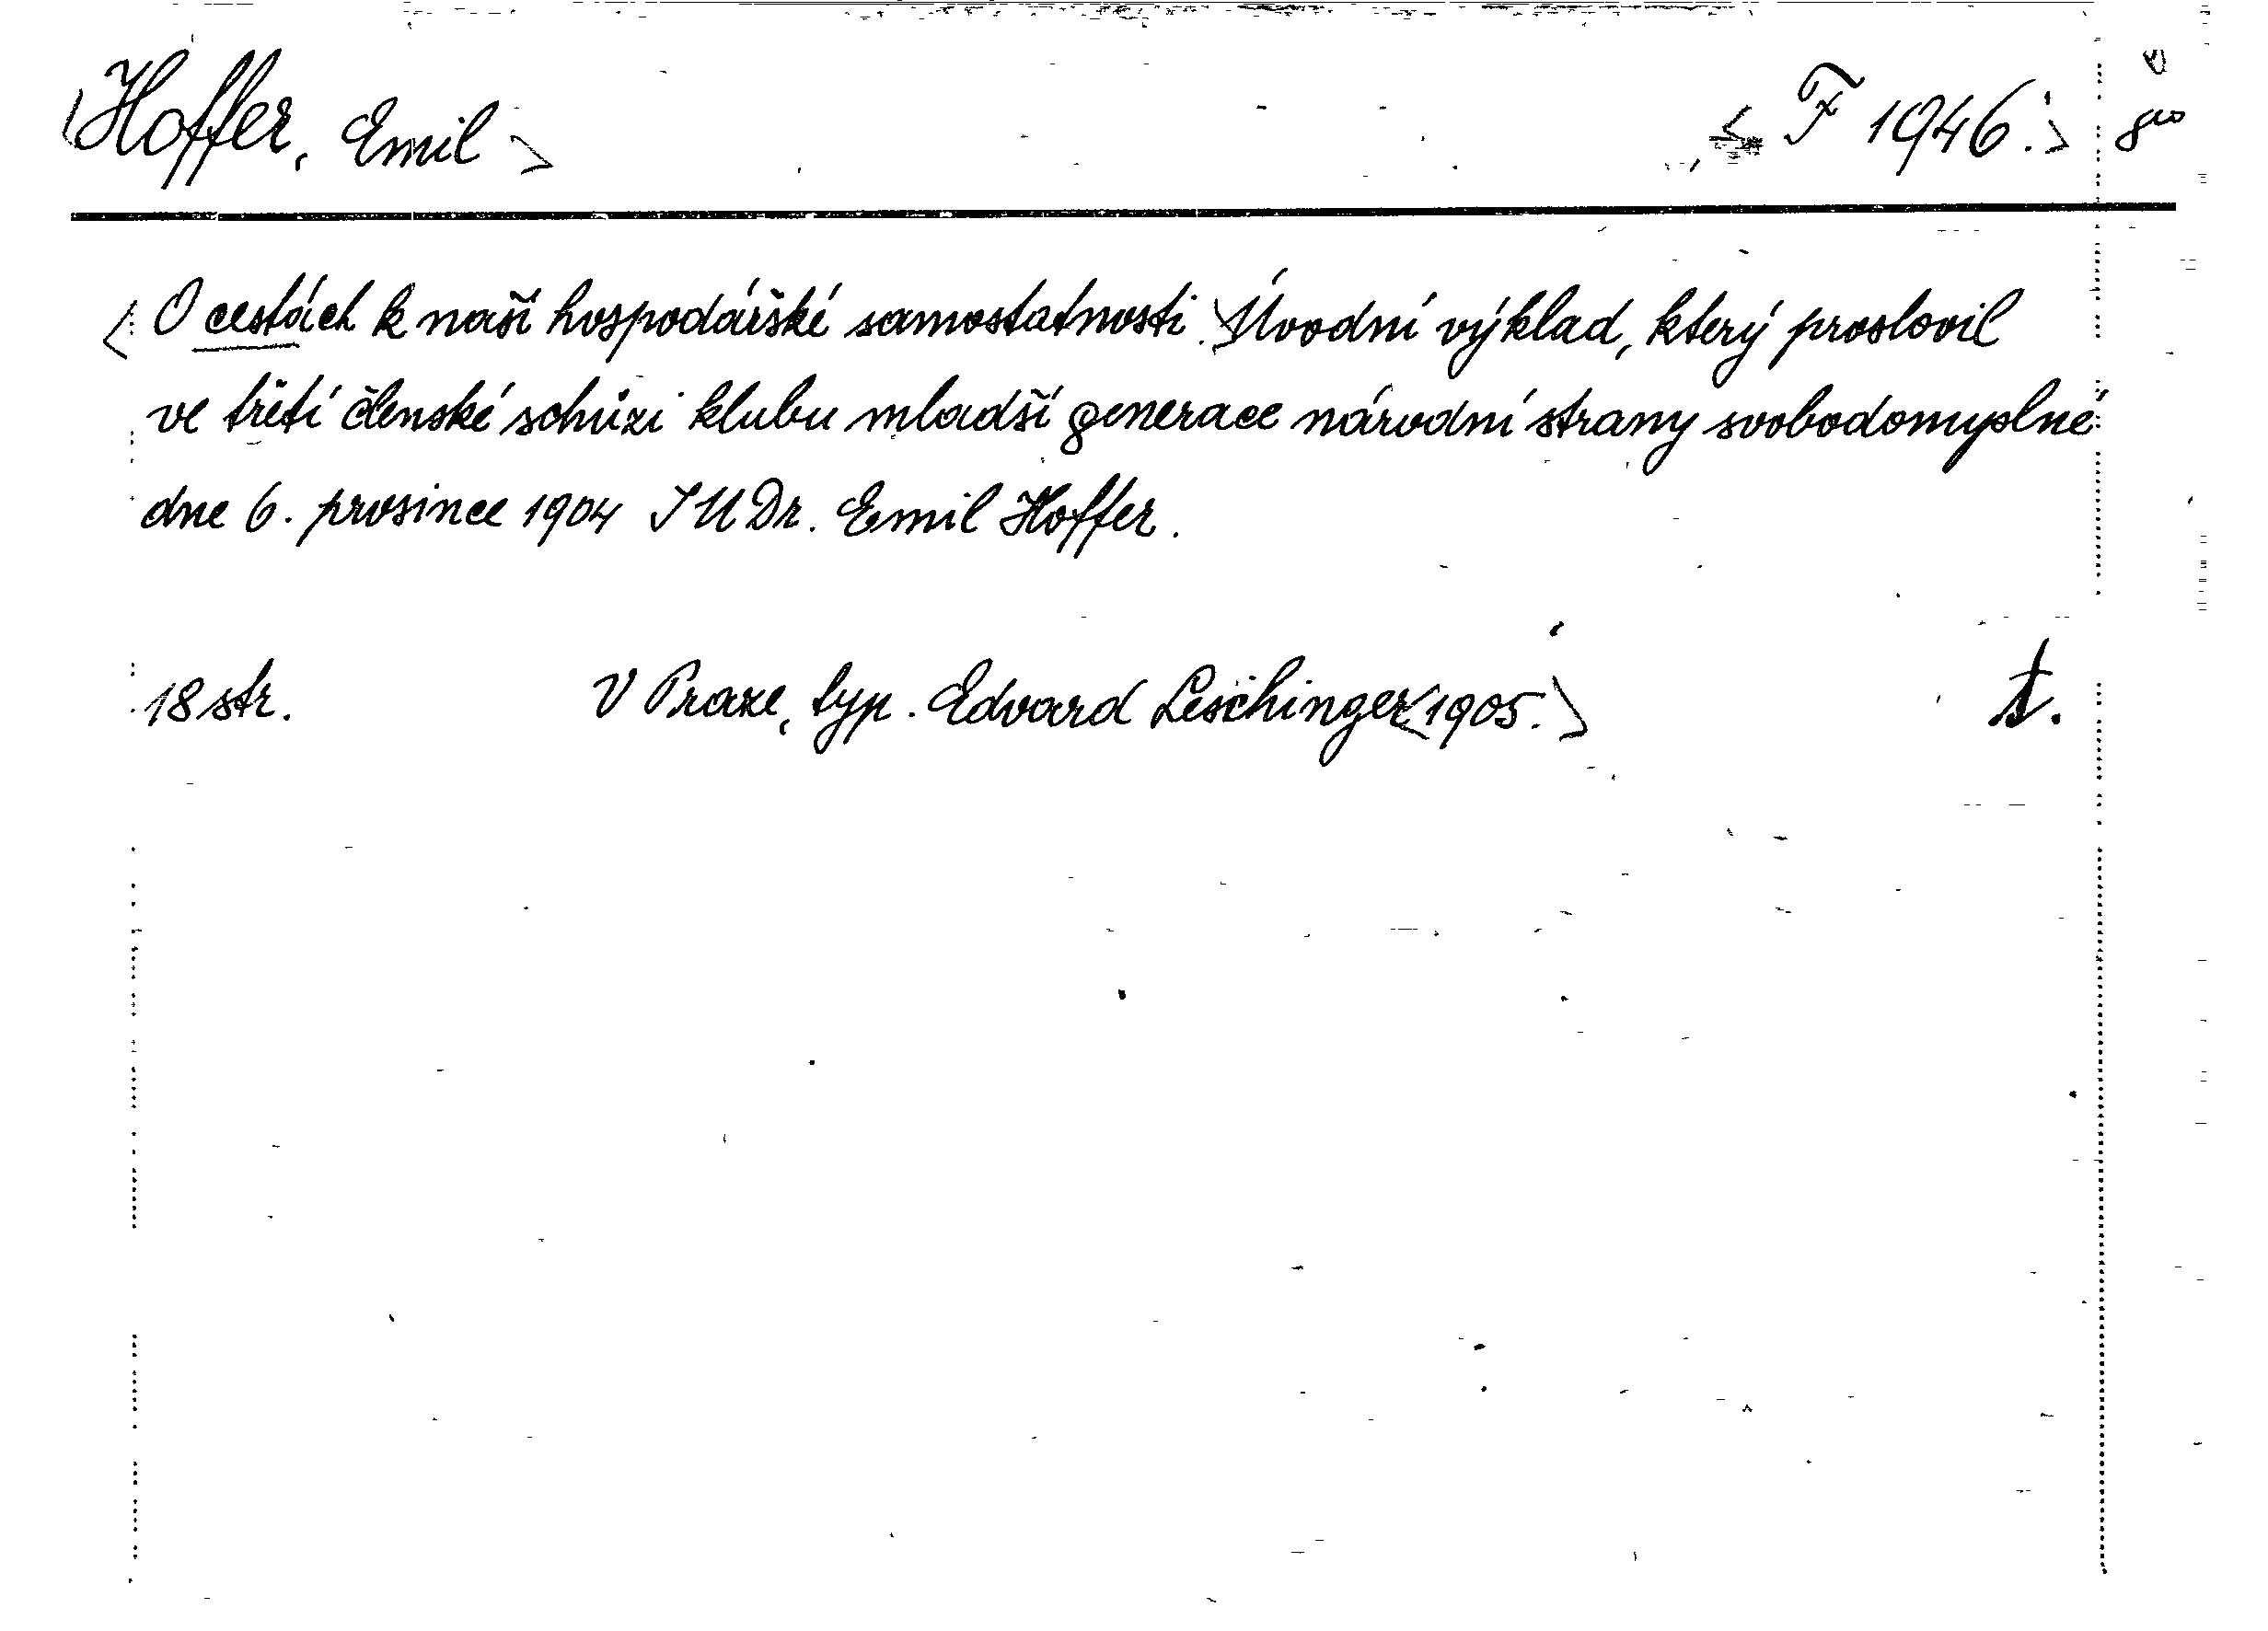 <Hoffer, Emil> < F 1946.> 8uo
<O cestách k naší hospodářské samostatnosti.> Úvodní výklad, který proslovil
ve třetí členské schůzi klubu mladší generace národní strany svobodomyslné
dne 6. prosince 1904 JUDr. Emil Hoffer.
18 str. V Praze, typ. Edvard Leschinger <1905.> t.